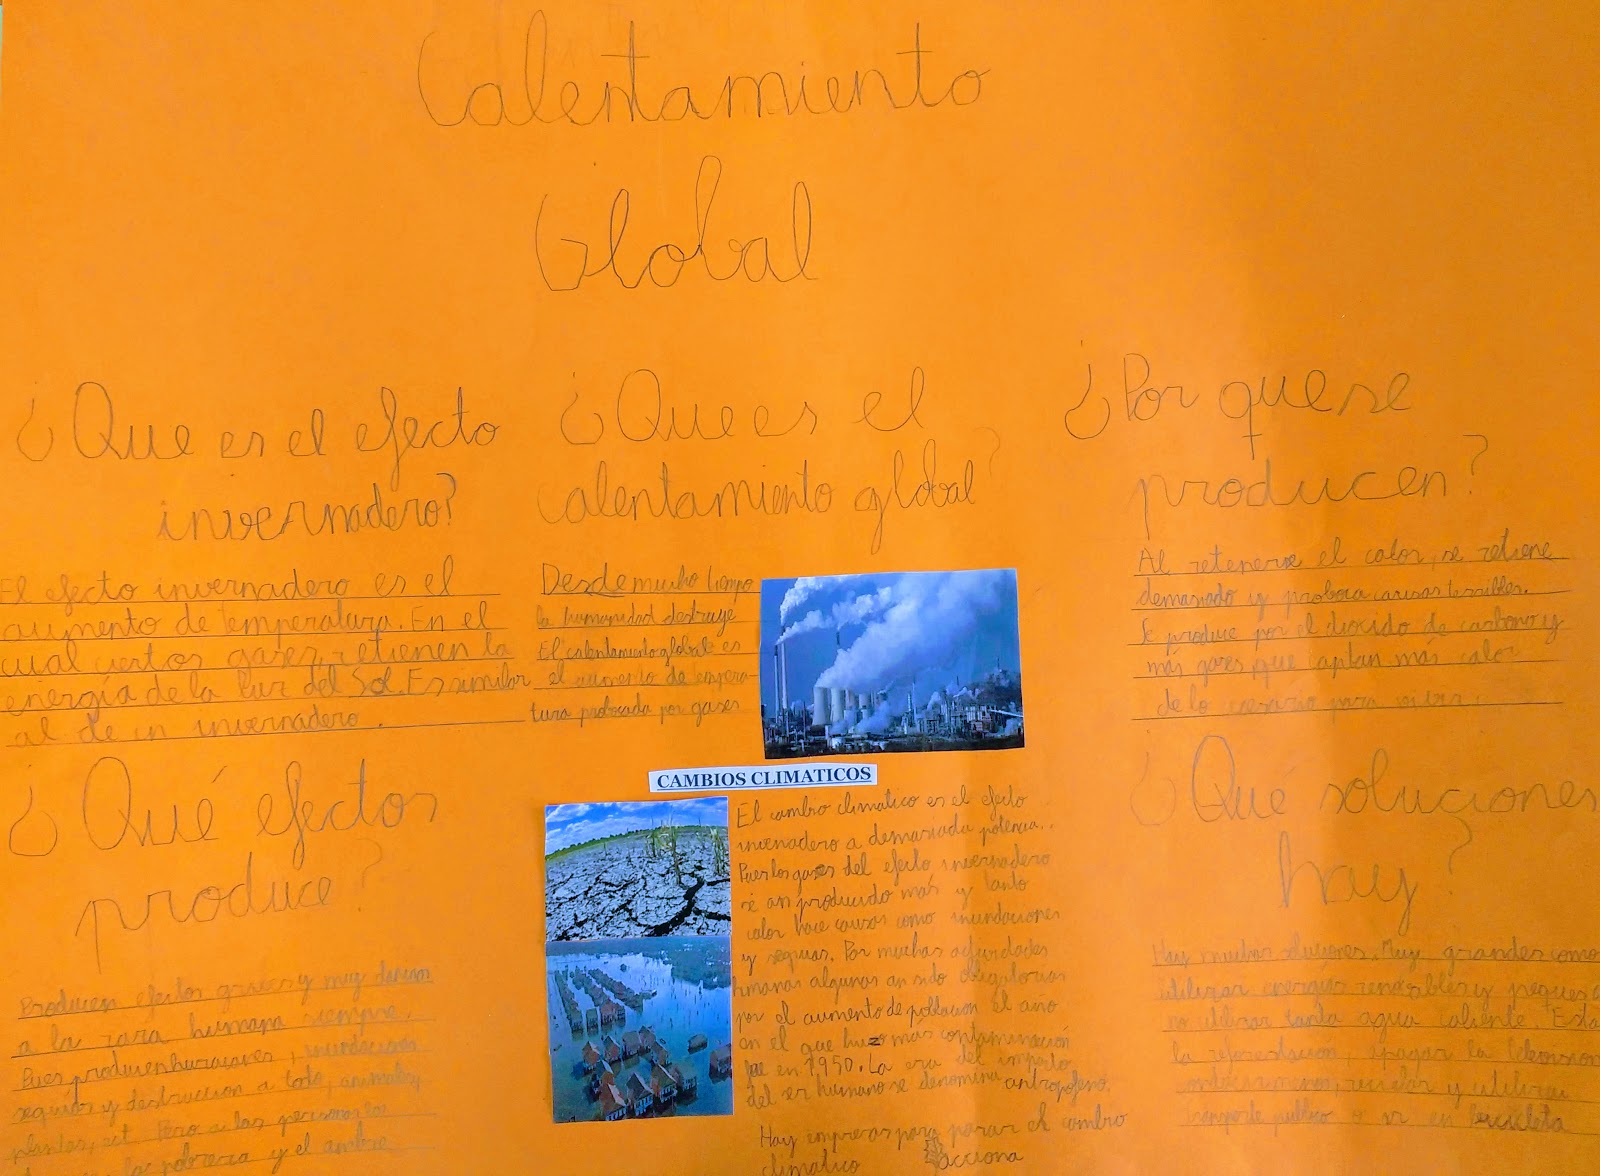 Calentamiento
Global
¿Que es el efecto
invernadero?
El efecto invernadero es el
aumento de temperatura. En el
cual ciertos gases, retienen la
energía de la luz del Sol. Es similar
al de in invernadero.
¿Que es el
calentamiento global?
Desde mucho tiempo
la humanidad destruye
El calentamiento global es
el aumento de tempera-
tura probocada por gases
¿Por que se
producen?
Al retenerse el calor, se retiene
demasiado y proboca causas terribles.
Se produce por el dioxido de carbono y
más gases que captan más calor
de lo para vivir.
¿Qué efectos
produce?
Producen efectos graves y muy
a la raza humana siempre.
Pues producen huracanes, inundaciones
sequías y destruccion a todo, animales,
plantas, ect. Pero a las personas los
la pobreza y el ambre
CAMBIOS CLIMATICOS
El cambio climatico es el efecto
invernadero a demasiada potencia.
Pues los gases del efecto invernadero
se an producido más y tanto
calor hace causas como inundaciones
y sequias. Por muchas actividades
humanas algunas an sido obligatorias
por el aumento de poblacion El año
en el que huzo más contaminación
fue en 1.950. La era del impacto
del ser humano se denomina antropofeno.
Hay empresas para parar el cambio
climatico acciona
¿Qué soluciones
hay?
Hay muchas soluciones. Muy grandes como
utilizar energias renovables y pequeña
no utilizar tanta agua caliente. Esta
la reforestacion, apagar la television
menos, reciclar y utilizar
transporte publico y ir en bicicleta